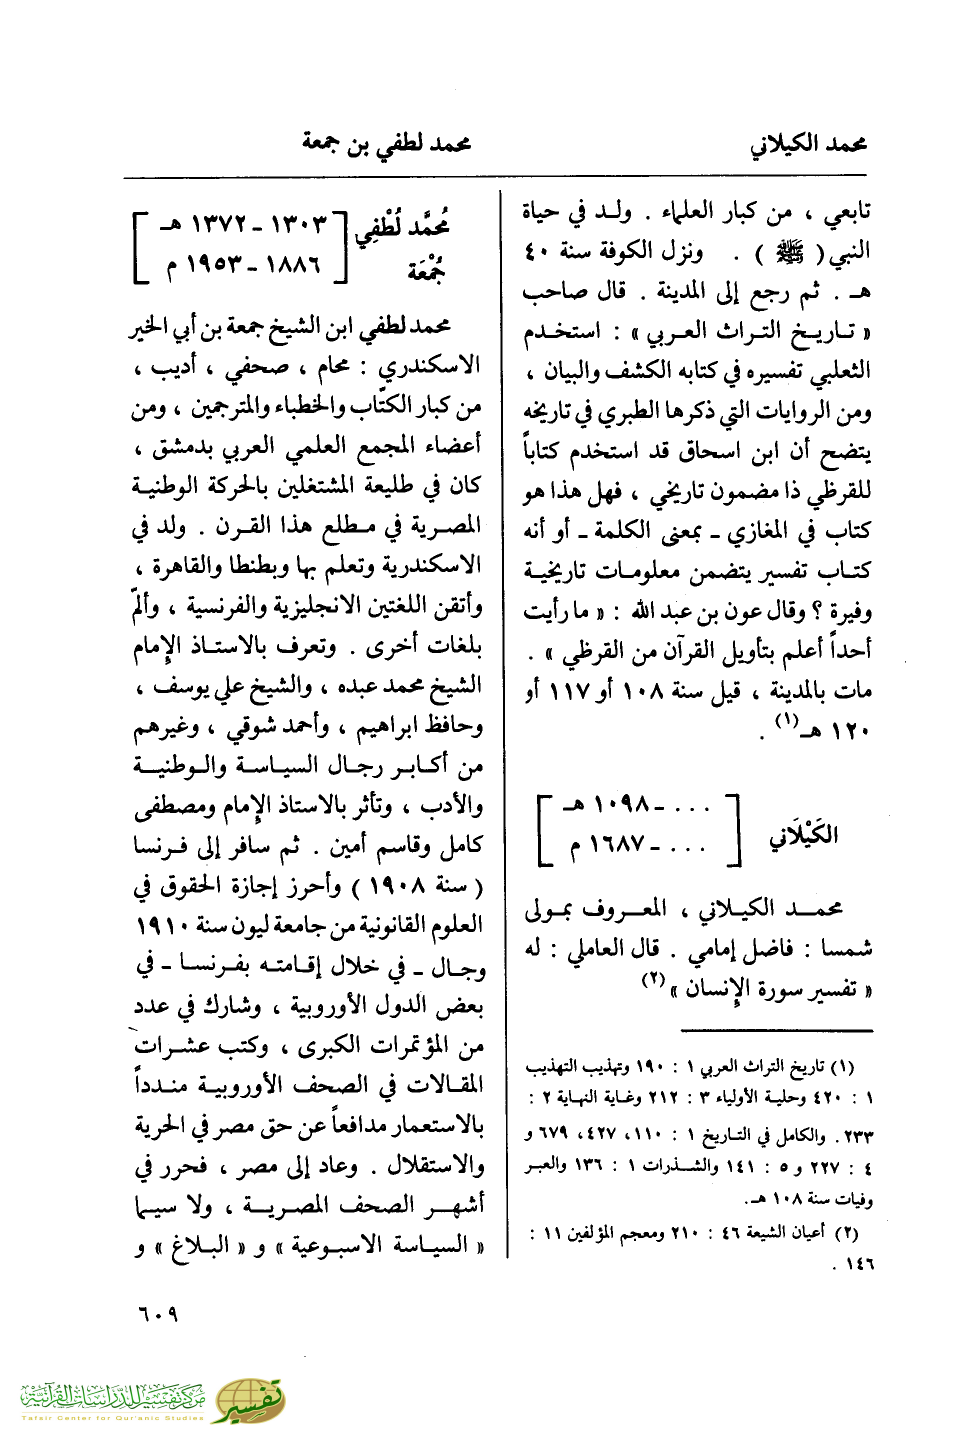 محمد الكيلاني
محمد لطفي بن جمعة
تابعي ، من كبار العلماء . ولد في حياة
النبي ( ﷺ ) . ونزل الكوفة سنة ٤٠
هـ . ثم رجع إلى المدينة . قال صاحب
« تاريخ التراث العربي » : استخدم
الثعلبي تفسيره في كتابه الكشف والبيان ،
ومن الروايات التي ذكرها الطبري في تاريخه
يتضح أن ابن اسحاق قد استخدم كتاباً
للقرظي ذا مضمون تاريخي ، فهل هذا هو
كتاب في المغازي ـ بمعنى الكلمة ـ أو أنه
كتاب تفسير يتضمن معلومات تاريخية
وفيرة ؟ وقال عون بن عبد الله : « ما رأيت
أحداً أعلم بتأويل القرآن من القرظي » .
مات بالمدينة ، قيل سنة ١٠٨ أو ١١٧ أو
١٢٠ هـ(١) .
الكَيْلَاني
[ ٠٠٠ ـ ١٠٩٨ هـ
٠٠٠ ـ ١٦٨٧ م ]
محمد الكيلاني ، المعروف بمولى
شمسا : فاضل إمامي . قال العاملي : له
« تفسير سورة الإنسان »(٢)
(١) تاريخ التراث العربي ١ : ١٩٠ وتهذيب التهذيب
١ : ٤٢٠ وحلية الأولياء ٣ : ٢١٢ وغاية النهاية ٢ :
٢٣٣ . والكامل في التاريخ ١ : ١١٠، ٤٢٧، ٦٧٩ و
٤ : ٢٢٧ و ٥ : ١٤١ والشذرات ١ : ١٣٦ والعبر
وفيات سنة ١٠٨ هـ.
(٢) أعيان الشيعة ٤٦ : ٢١٠ ومعجم المؤلفين ١١ :
١٤٦ .
مُحمَّد لُطْفِي
جُمْعَة
[ ١٣٠٣ ـ ١٣٧٢ هـ
١٨٨٦ ـ ١٩٥٣ م ]
محمد لطفي ابن الشيخ جمعة بن أبي الخير
الاسكندري : محام ، صحفي ، أديب ،
من كبار الكتّاب والخطباء والمترجمين ، ومن
أعضاء المجمع العلمي العربي بدمشق ،
كان في طليعة المشتغلين بالحركة الوطنية
المصرية في مطلع هذا القرن . ولد في
الاسكندرية وتعلم بها وبطنطا والقاهرة ،
وأتقن اللغتين الانجليزية والفرنسية ، وألمّ
بلغات أخرى . وتعرف بالاستاذ الإمام
الشيخ محمد عبده ، والشيخ علي يوسف ،
وحافظ ابراهيم ، وأحمد شوقي ، وغيرهم
من أكابر رجال السياسة والوطنية
والأدب ، وتأثر بالاستاذ الإمام ومصطفى
كامل وقاسم أمين . ثم سافر إلى فرنسا
( سنة ١٩٠٨ ) وأحرز إجازة الحقوق في
العلوم القانونية من جامعة ليون سنة ١٩١٠
وجال ـ في خلال إقامته بفرنسا ـ في
بعض الدول الأوروبية ، وشارك في عدد
من المؤتمرات الكبرى ، وكتب عشرات
المقالات في الصحف الأوروبية مندداً
بالاستعمار مدافعاً عن حق مصر في الحرية
والاستقلال . وعاد إلى مصر ، فحرر في
أشهر الصحف المصرية ، ولا سيما
« السياسة الاسبوعية » و « البلاغ » و
٦٠٩
مركز تفسير للدراسات القرآنية
Tafsir Center for Qur'anic Studies
تفسير